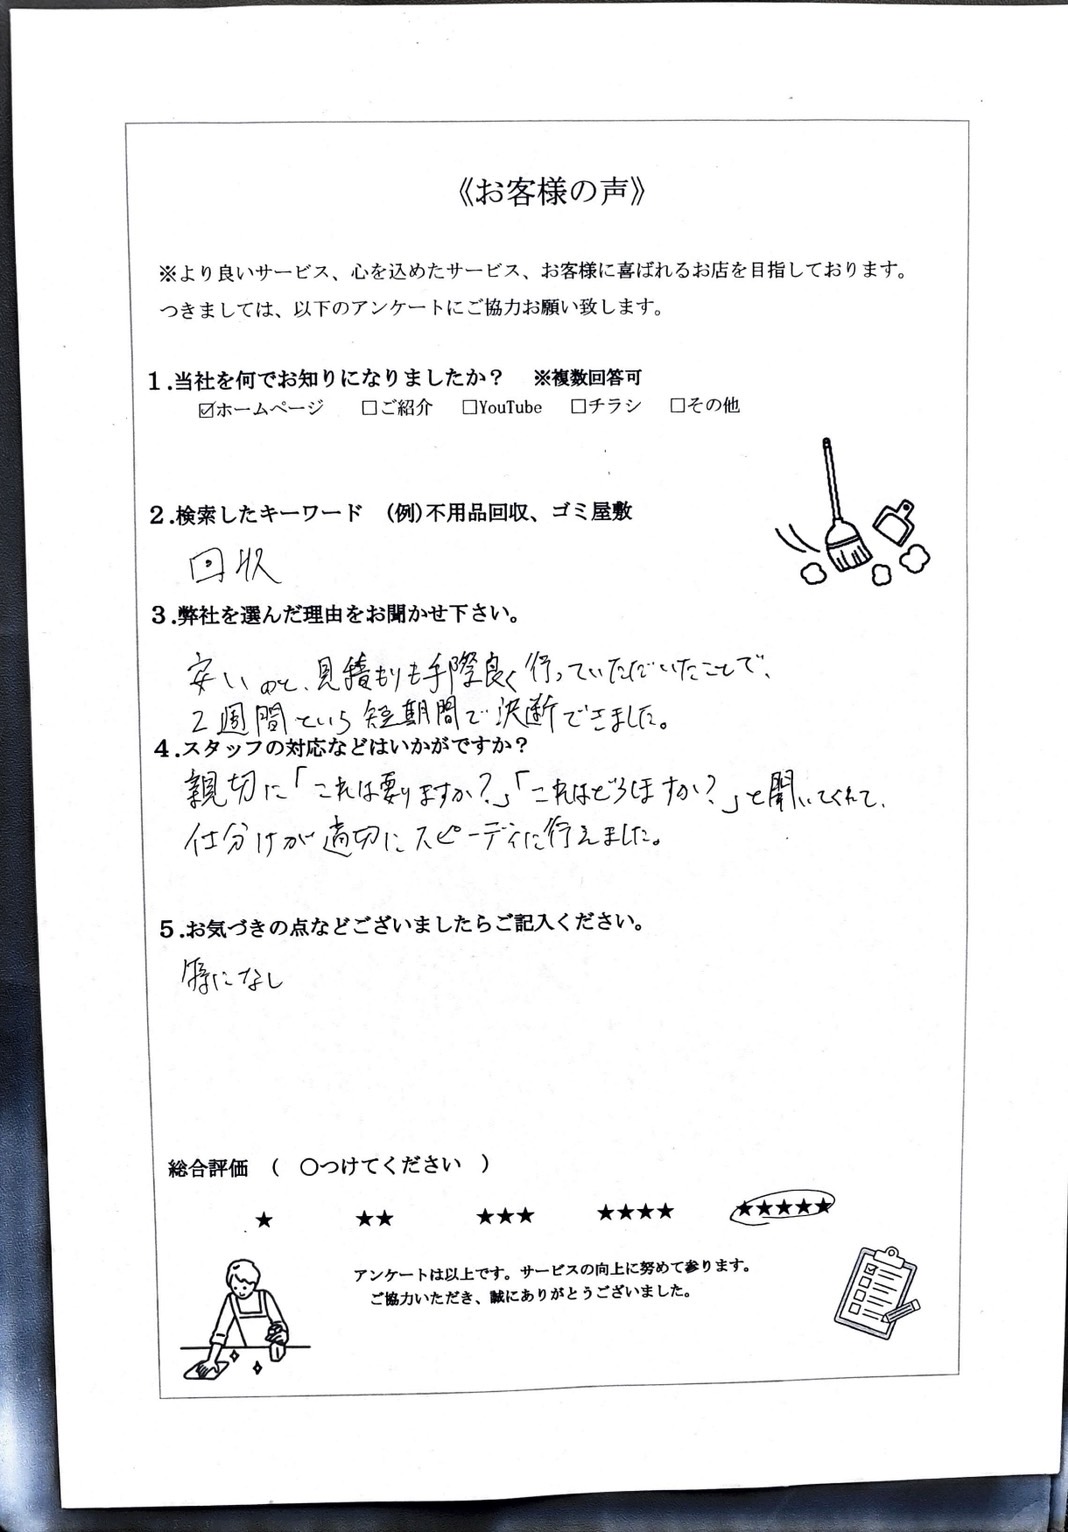 《お客様の声》
※より良いサービス、心を込めたサービス、お客様に喜ばれるお店を目指しております。
つきましては、以下のアンケートにご協力お願い致します。
1.当社を何でお知りになりましたか？　※複数回答可
☑ホームページ　□ご紹介　□YouTube　□チラシ　□その他
2.検索したキーワード　(例)不用品回収、ゴミ屋敷
回収
3.弊社を選んだ理由をお聞かせ下さい。
安いのと、見積もりも手際良く行っていただいたことで、
2週間という短期間で決断できました。
4.スタッフの対応などはいかがですか？
親切に「これは要りますか？」「これはどうしますか？」と聞いてくれて、
仕分けが適切にスピーディに行えました。
5.お気づきの点などございましたらご記入ください。
特になし
総合評価　(　〇つけてください　)
★　★★　★★★　★★★★　★★★★★
アンケートは以上です。サービスの向上に努めて参ります。
ご協力いただき、誠にありがとうございました。